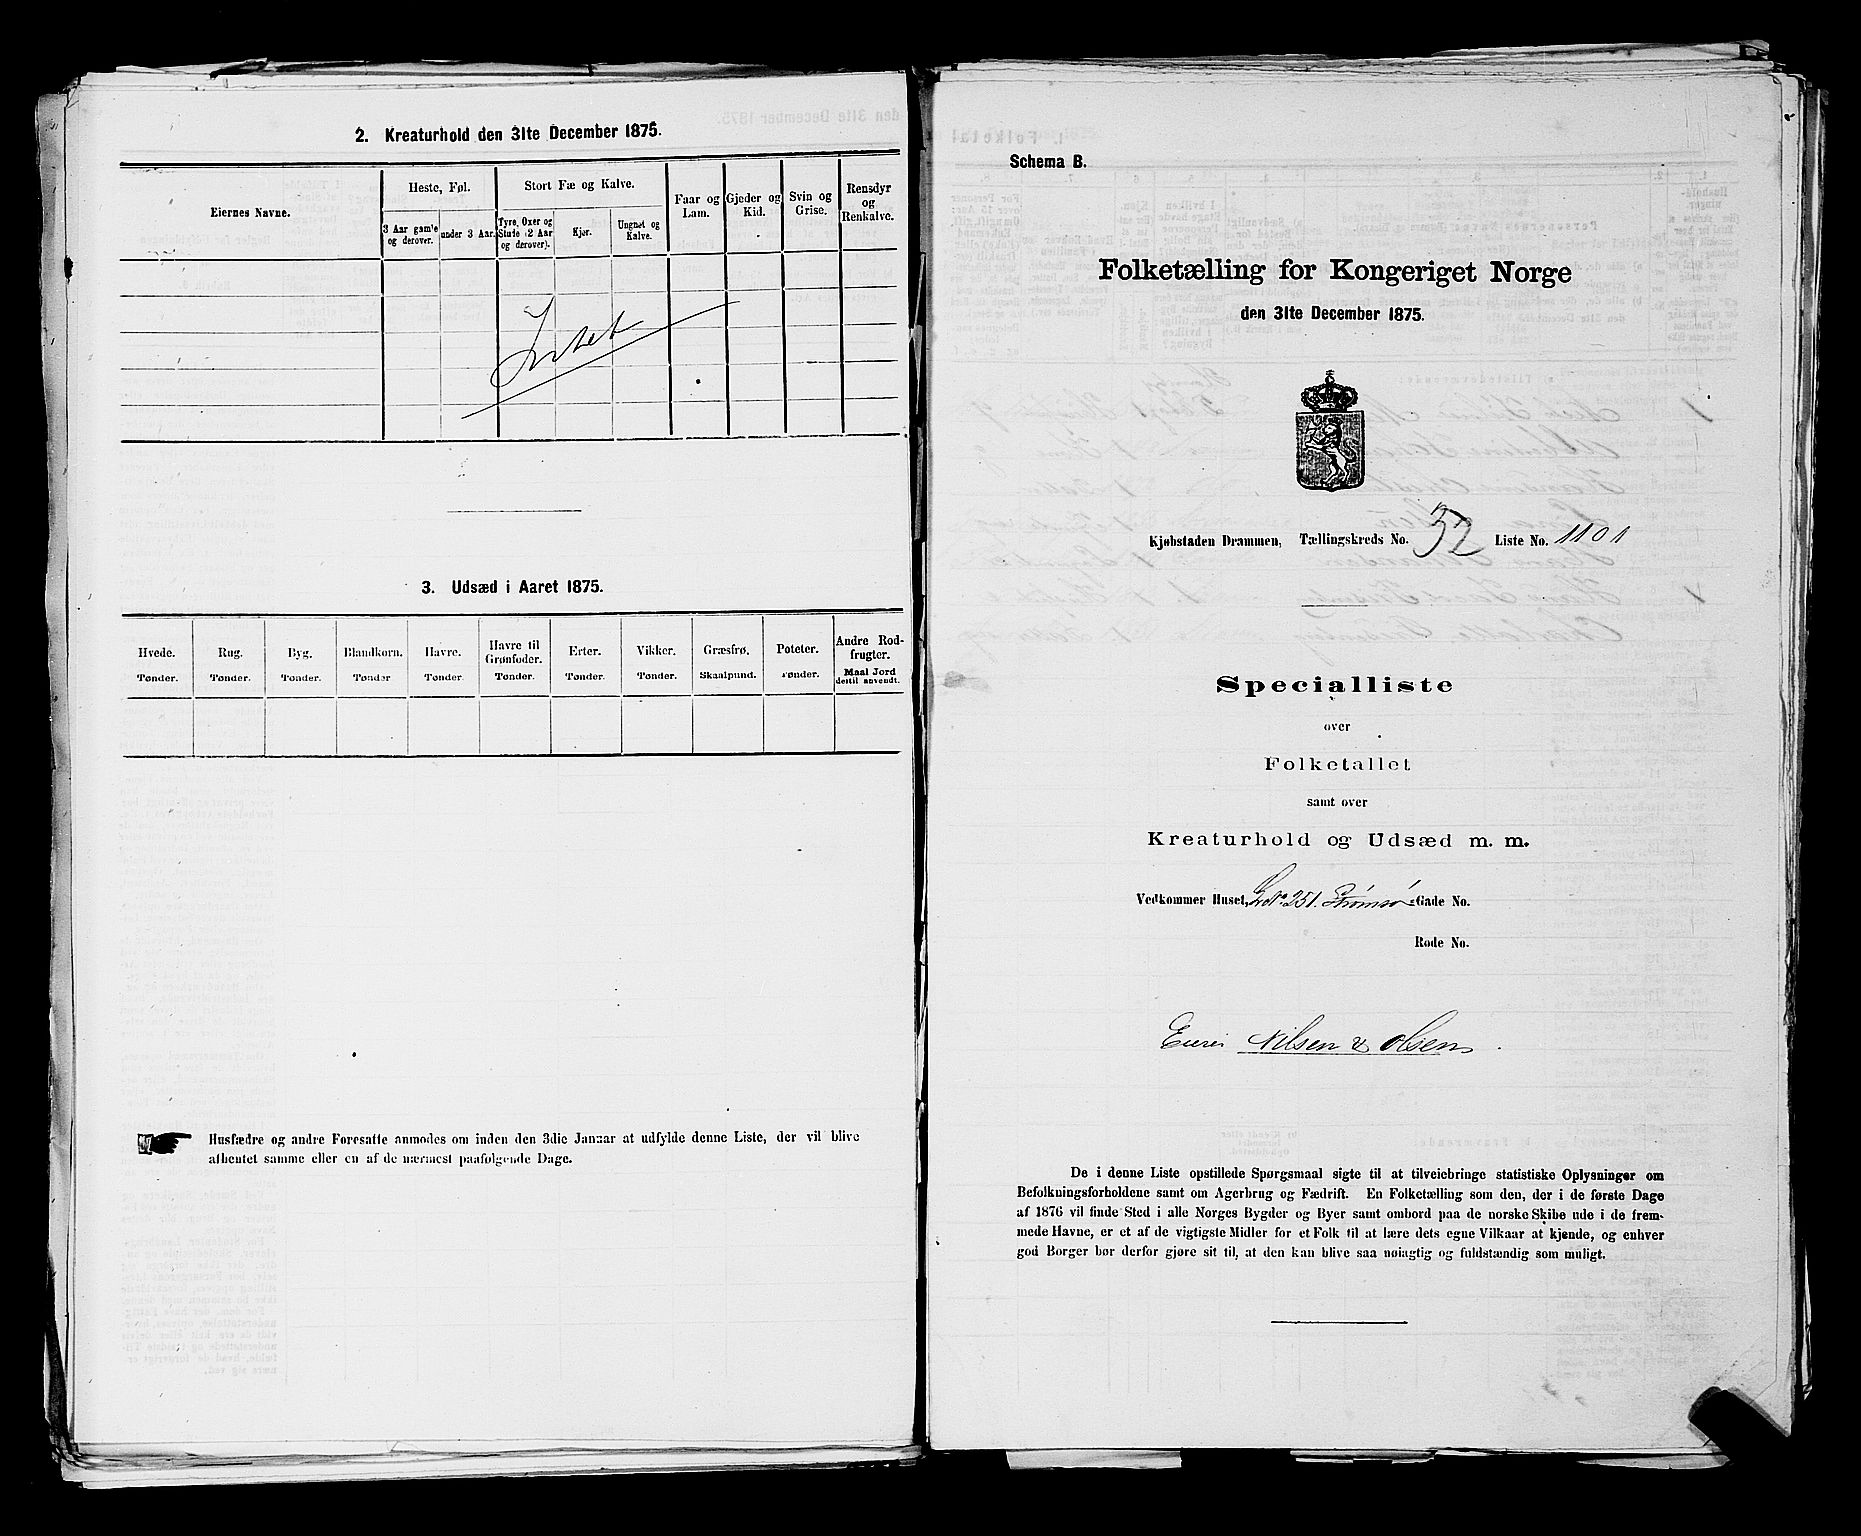 2. Kreaturhold den 31te December 1875.
Eiernes Navne.
Heste, Føl.
Stort Fæ og Kalve.
Faar og Lam.
Gjeder og Kid.
Svin og Grise.
Rensdyr og Renkalve.
3 Aar gamle og derover.
under 3 Aar.
Tyre, Oxer og Stude (2 Aar og derover).
Kjør.
Ungnøt og Kalve.
Intet
3. Udsæd i Aaret 1875.
Hvede. Rug. Byg. Blandkorn. Havre. Havre til Grønfoder. Erter. Vikker. Græsfrø. Poteter. Andre Rodfrugter.
Tønder. Tønder. Tønder. Tønder Tønder. Tønder. Tønder. Tønder. Skaalpund. Tønder. Maal Jord dertil anvendt.
Husfædre og andre Foresatte anmodes om inden den 3die Januar at udfylde denne Liste, der vil blive
afhentet samme eller en af de nærmest paafølgende Dage.
Schema B.
Folketælling for Kongeriget Norge
den 31te December 1875.
Kjøbstaden Drammen, Tællingskreds No. 32 Liste No. 1101
Specialliste
over
Folketallet
samt over
Kreaturhold og Udsæd m. m.
Vedkommer Huset, No. 251. Strømsø Gade No.
Rode No.
Eier Nilsen & Olsen
De i denne Liste opstillede Spørgsmaal sigte til at tilveiebringe statistiske Oplysninger om
Befolkningsforholdene samt om Agerbrug og Fædrift. En Folketælling som den, der i de første Dage
af 1876 vil finde Sted i alle Norges Bygder og Byer samt ombord paa de norske Skibe ude i de frem-
mede Havne, er et af de vigtigste Midler for et Folk til at lære dets egne Vilkaar at kjende, og enhver
god Borger bør derfor gjøre sit til, at den kan blive saa nøiagtig og fuldstændig som muligt.